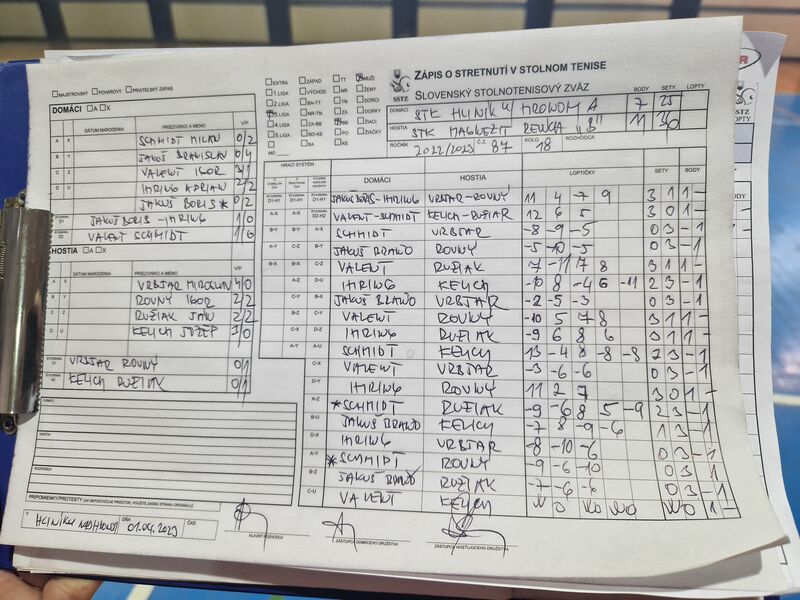 MAJSTROVSKÝ POHÁROVÝ PRIATEĽSKÝ ZÁPAS
EXTRA ZÁPAD TT MUŽI
1.LIGA VÝCHOD NR ŽENY
2.LIGA BA-TT TN DORCI
3.LIGA NR-TN ZA DORKY
4.LIGA ZA-BB BB ŽIACI
5.LIGA BO-KE PO ŽIAČKY
BA KE
MO
SSTZ
ZÁPIS O STRETNUTÍ V STOLNOM TENISE
SLOVENSKÝ STOLNOTENISOVÝ ZVÄZ
BODY SETY LOPTY
DOMÁCI STK HLINÍK N/ HRONOM A 7 25
HOSTIA STK MAGNEZIT "B" 11 
ROČNÍK 2022/2023 Č.Z. 87 KOLO 18 ROZHODCA
DOMÁCI A X
DÁTUM NARODENIA PRIEZVISKO A MENO V/P
A X SCHMIDT MILAN 0/2
B Y JAKUŠ BRANISLAV 0/4
C Z VALENT IGOR 3/1
D U IHRING ADRIAN 2/2
JAKUŠ BORIS * 0/2
ŠTVORHRA D1 JAKUŠ BORIS - IHRING 1/0
ŠTVORHRA D2 VALENT SCHMIDT 1/0
HOSTIA A X
DÁTUM NARODENIA PRIEZVISKO A MENO V/P
A X VRBJAR MIROSLAV 4/0
B Y ROVNÝ IGOR 2/2
C Z RUŽIAK JÁN 2/2
D U KELICH JOZEF 3/0
ŠTVORHRA VRBJAR ROVNÝ 0/1
ŠTVORHRA H2 KELICH RUŽIAK 0/1
HRACÍ SYSTÉM
DOMÁCI HOSTIA LOPTIČKY SETY BODY
D1-H1 D1-H1 D1-H1 JAKUŠ BORIS-IHRING VRBJAR-ROVNÝ 11 4 -7 9 3 1 1 -
A-X A-X D2-H2 VALENT-SCHMIDT KELICH-RUŽIAR 12 6 5 3 0 1 -
B-Y B-Y A-X SCHMIDT VRBJAR -8 -9 -5 0 3 - 1
A-Y C-Z B-Y JAKUŠ BRAŇO ROVNÝ -5 -10 -5 0 3 - 1
B-X B-X C-Z VALENT RUŽIAK 7 -11 7 8 3 1 1 -
A-Z D-U IHRING KELICH -10 8 -4 6 -11 2 3 - 1
C-Y B-X JAKUŠ BRAŇO VRBJAR -2 -5 -3 0 3 - 1
B-Z C-Y VALENT ROVNÝ -10 5 7 8 3 1 1 -
C-X D-Z IHRING RUŽIAK -9 6 8 6 3 1 1 -
A-Y A-U SCHMIDT KELICH 13 -4 8 -8 -8 2 3 - 1
C-X VALENT VRBJAR -3 -6 -6 0 3 - 1
D-Y IHRING ROVNÝ 11 2 7 3 0 1 -
A-Z *SCHMIDT RUŽIAK -9 -6 8 5 -9 2 3 - 1
B-U JAKUŠ BRAŇO KELICH -7 8 -9 -6 1 3 - 1
D-X IHRING VRBJAR -8 -10 -6 0 3 - 1
A-Y *SCHMIDT ROVNÝ -9 -6 -10 0 3 - 1
B-Z JAKUŠ BRAŇO RUŽIAK -7 -6 -6 0 3 - 1
C-U VALENT KELICH WO WO WO WO 1 -
DOMÁCI
HOSTIA
ROZHODCA
PRIPOMIENKY/PROTESTY (AK NEPOSTAČUJE PRIESTOR, POUŽITE ZADNÚ STRANU ORIGINÁLU)
V HLINÍKU NAD HRONOM DŇA 01.04.2023 ČAS
HLAVNÝ ROZHODCA ZÁSTUPCA DOMÁCEHO DRUŽSTVA ZÁSTUPCA HOSŤUJÚCEHO DRUŽSTVA